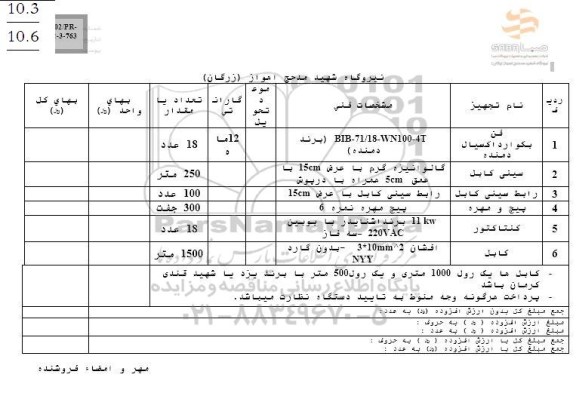 10.3
10.6
02/PR-
-3-763
نیروگاه شهید مدحج اهواز (زرگان)
ردیف نام تجهیز مشخصات فنی موعد تحویل گارانتی تعداد یا مقدار بهای واحد (ریال) بهای کل (ریال)
1 فن بکوارداکسیال دمنده BIB-71/18-WN100-4T (برند دمنده) 12ماه 18 عدد
2 سینی کابل گالوانیزه گرم با عرض 15cm با عمق 5cm همراه با درپوش 250 متر
3 رابط سینی کابل رابط سینی کابل با عرض 15cm 100 عدد
4 پیچ و مهره پیچ مهره نمره 6 300 جفت
5 کنتاکتور 11 kw برنداشنایدر با بوبین 220VAC -سه فاز 18 عدد
6 کابل افشان 3*10mm^2 -بدون گارد NYY 1500 متر
- کابل ها یک رول 1000 متری و یک رول500 متر با برند یزد یا شهید قندی کرمان باشد
- پرداخت هرگونه وجه منوط به تایید دستگاه نظارت میباشد.
جمع مبلغ کل بدون ارزش افزوده (ریال) به عدد:
مبلغ ارزش افزوده (ریال) به حروف :
جمع مبلغ کل با ارزش افزوده (ریال) به حروف :
جمع مبلغ کل با ارزش افزوده (ریال) به عدد :
مهر و امضاء فروشنده
ParsNamadData
پایگاه اطلاع رسانی مناقصه و مزایده
۰۲۱-۸۸۳۴۹۶۷۰-۵